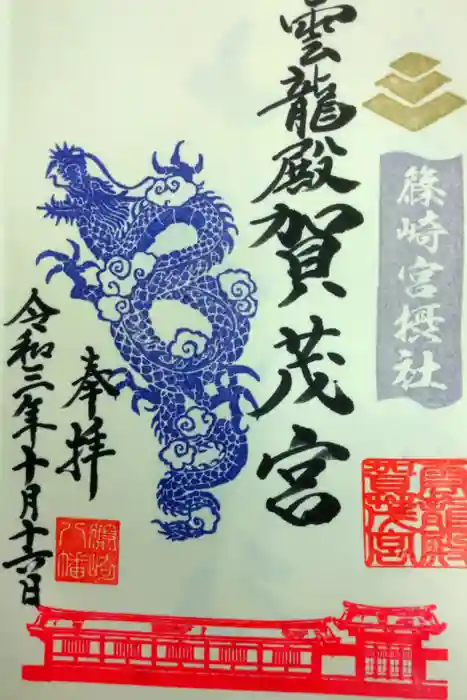 篠崎宮摂社
雲龍殿賀茂宮
雲龍殿
賀茂宮
奉拝
篠崎
八幡
令和三年十月十六日